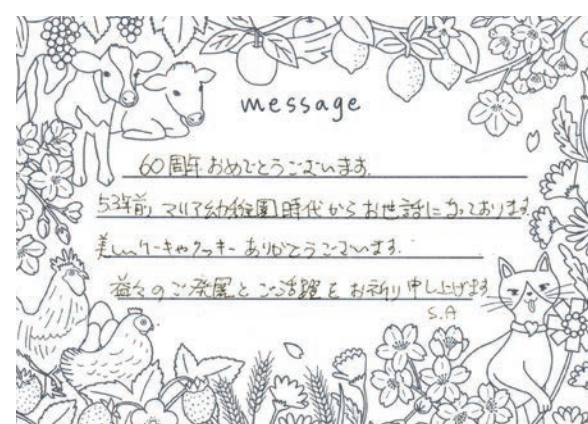 message
60周年おめでとうございます。
53年前、マリア幼稚園時代からお世話になっております。
美しいケーキやクッキーありがとうございます。
益々のご発展とご活躍をお祈り申し上げます
S.A